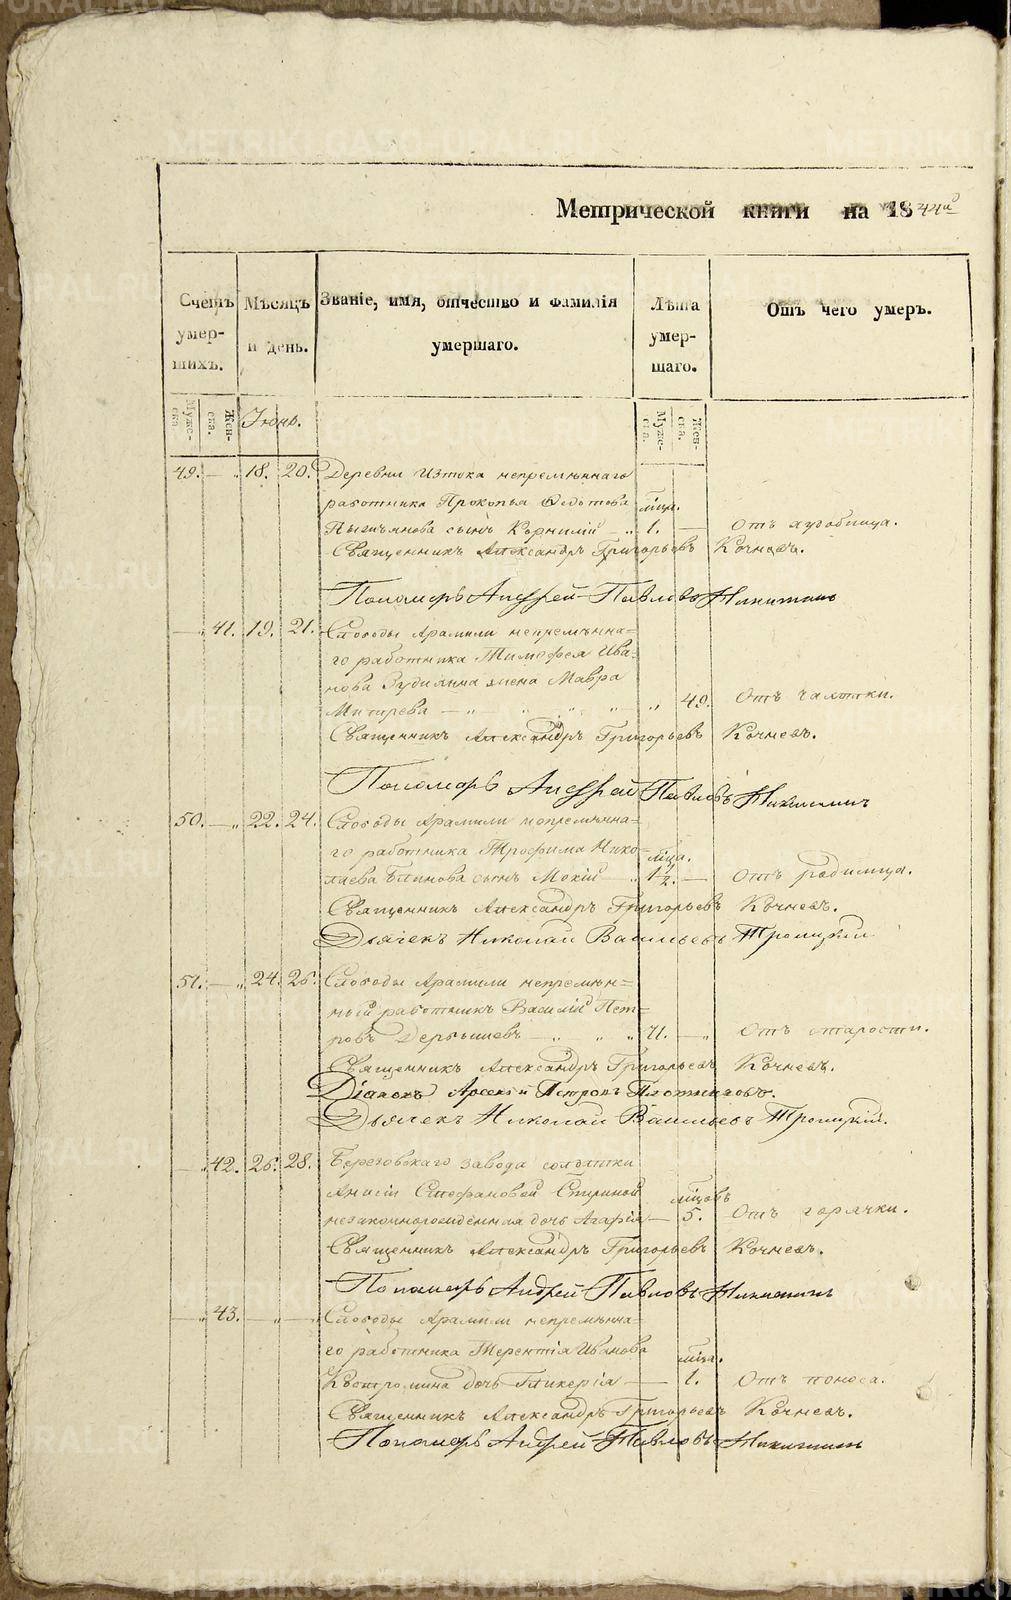 METRIKI.GASO-URAL.RU
Метрической книги на 1844й
Счетъ умер-шихъ.
Мѣсяцъ и день.
Званіе, имя, отчество и фамилія умершаго.
Лѣта умер-шаго.
Отъ чего умеръ.
Муже-ска.
Жен-ска.
Іюнь.
Муже-ска.
Жен-ска.
49. — „ 18. 20. Деревни Истока непремѣннаго
работника Прокопья Ѳедотова мѣца.
сынъ Корнилій „ 1. — Отъ худобища.
Священникъ Александръ Григорьевъ Кочневъ.
Пономарь Андрей Павловъ Никитинъ
— „ 41. 19. 21. Слободы Арамили непремѣнна=
го работника Тимофея Ива=
нова жена Мавра
— „ „ „ „ 49. Отъ чахотки.
Священникъ Александръ Григорьевъ Кочневъ.
Пономарь Андрей Павловъ Никитинъ
50. — „ 22. 24. Слободы Арамили непремѣнна=
го работника Трофима Нико= мѣца.
лаева Блинова сынъ Мокій — „ 1½. — Отъ родимца.
Священникъ Александръ Григорьевъ Кочневъ.
Дьячекъ Николай Васильевъ Троицкій
51. — „ 24. 26. Слободы Арамили непремѣн=
ный работникъ Василій Пет=
ровъ Дербышевъ — „ „ „ 71. — „ Отъ старости.
Священникъ Александръ Григорьевъ Кочневъ.
Діаконъ Арсеній Петровъ Плотниковъ.
Дьячекъ Николай Васильевъ Троицкій.
— „ 42. 26. 28. Березовскаго завода солдатки
Анисіи Стефановой мѣцовъ
незаконнорожденная дочь Агафія — 5. Отъ горячки.
Священникъ Александръ Григорьевъ Кочневъ.
Пономарь Андрей Павловъ Никитинъ
— „ 43. — „ — Слободы Арамили непремѣнна=
го работника Терентія Иванова мѣца.
Костромина дочь Гликерія — — 1. Отъ поноса.
Священникъ Александръ Григорьевъ Кочневъ.
Пономарь Андрей Павловъ Никитинъ